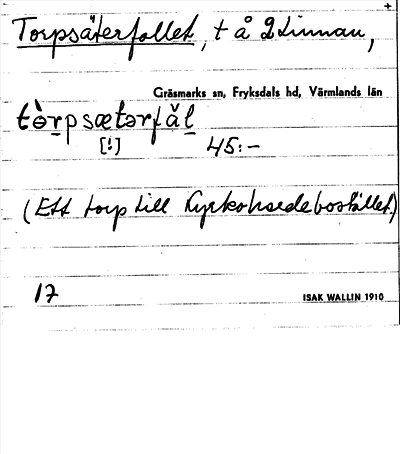 Torpsäterfallet, t å 2 Linnan,
Gräsmarks sn, Fryksdals hd, Värmlands län
tòrpsætərfăl
[!] 45:-
(Ett torp till Kyrkoherdebostället.)
17
ISAK WALLIN 1910